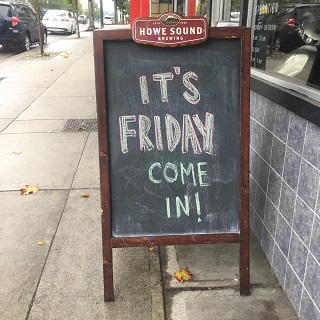 HOWE SOUND
BREWING
IT'S
FRIDAY
COME
IN!